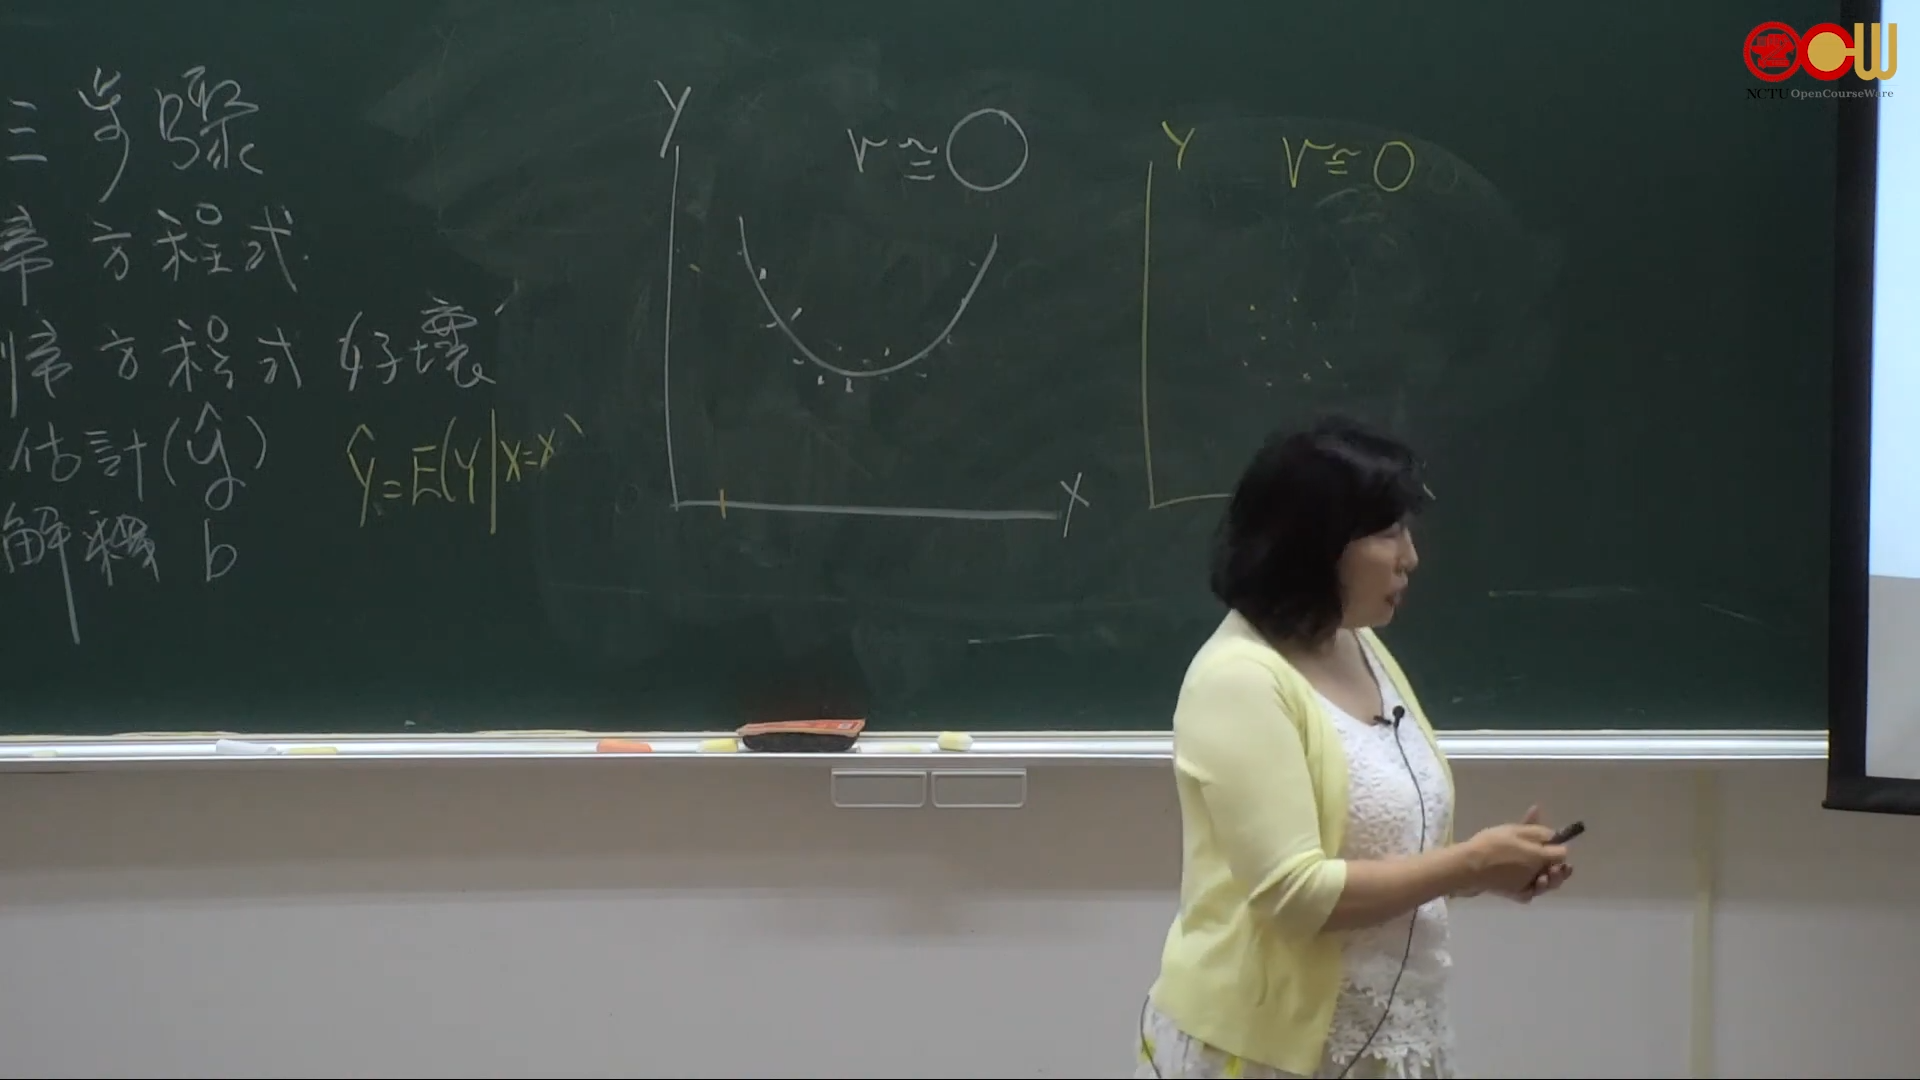 三步驟
歸方程式
歸方程式好壞
估計(ŷ) ŷ=E(Y|X=x)
解釋 b
Y
r≅0
X
Y
r≅0
NCTU OpenCourseWare